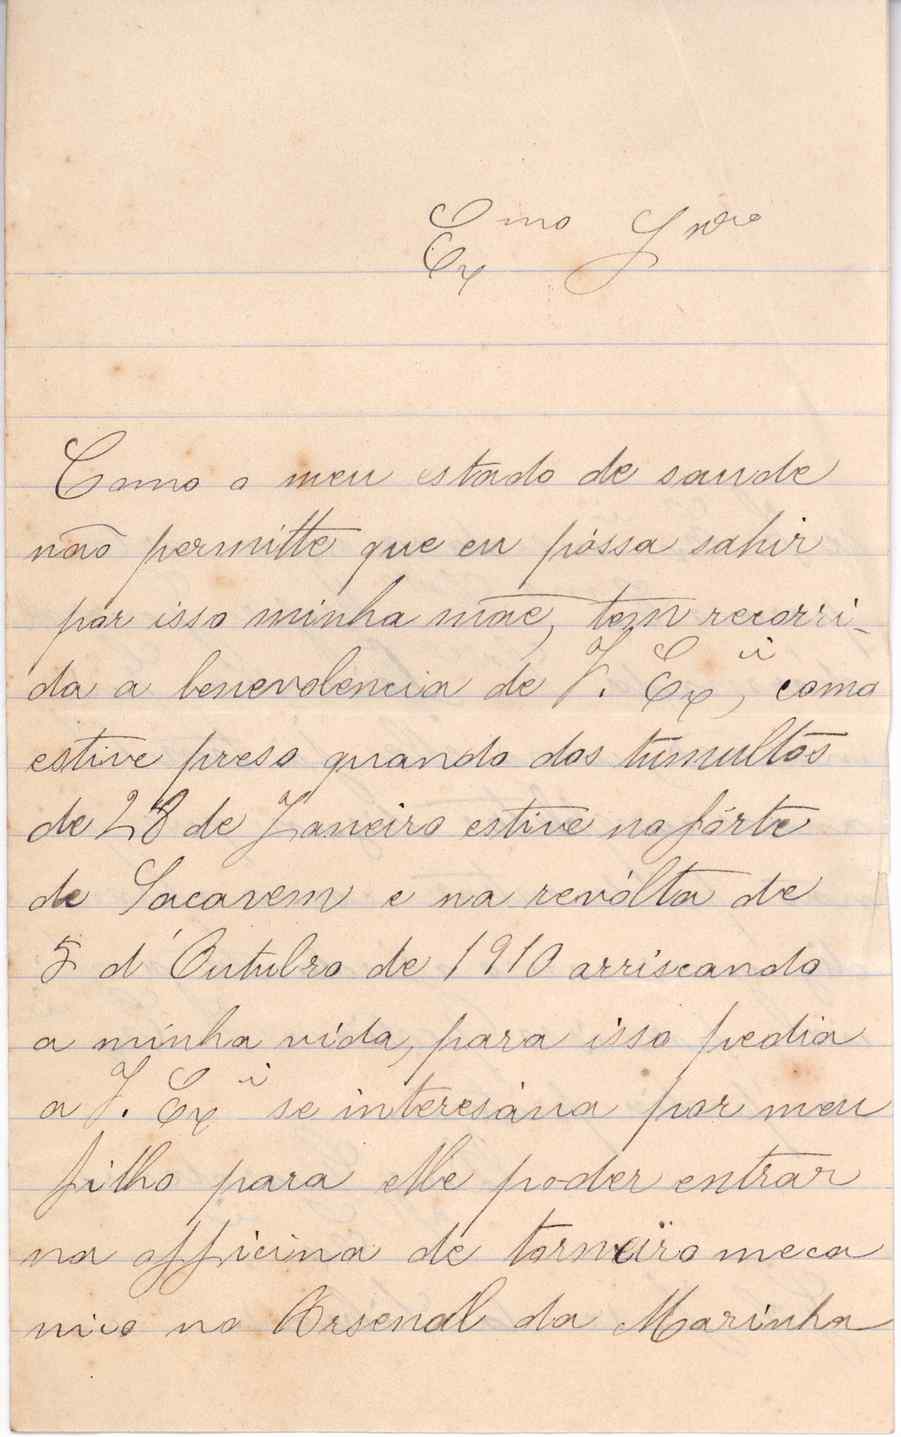 Exmo Snro
Como o meu estado de saude
não permitte que eu póssa sahir
por isso minha mãe, tem recorri-
da a benevolencia de V. Exii, como
estive preso quando dos tumultos
de 28 de Janeiro estive no fórte
de Sacavem e na revólta de
5 d'Outubro de 1910 arriscando
a minha vida, para isso pedia
a V. Exii se interesáua por meu
filho para elle poder entrar
na officina de torneiro meca
nico no Arsenal da Marinha